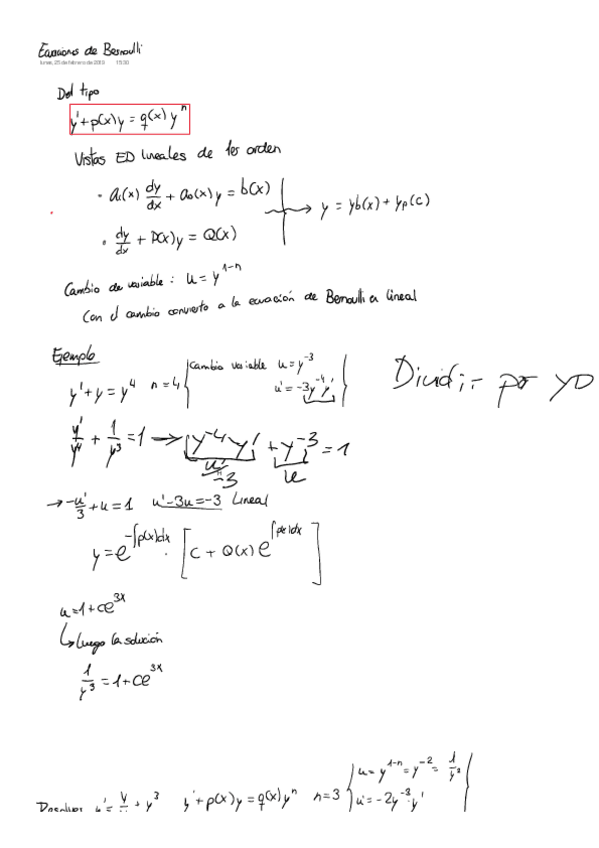 Ecuaciones de Bernoulli
lunes, 25 de febrero de 2019 15:30
Del tipo
y' + p(x)y = q(x) yⁿ
Vistas ED lineales de 1er orden
· a₁(x) dy/dx + a₀(x) y = b(x)
→ y = yb(x) + yp(c)
· dy/dx + P(x)y = Q(x)
Cambio de variable: u = y¹⁻ⁿ
Con el cambio convierto a la ecuación de Bernoulli en lineal
Ejemplo
y' + y = y⁴ n = 4 { Cambio variable u = y⁻³
u' = -3y⁻⁴y' }
Dividir por
y'/y⁴ + 1/y³ = 1 → y⁻⁴y' + y⁻³ = 1
u'/-3 u
→ -u'/3 + u = 1 u' - 3u = -3 Lineal
y = e^(-∫p(x)dx) · [C + Q(x) e^(∫p(x)dx)]
u = 1 + ce³ˣ
↳ Luego la solución
1/y³ = 1 + ce³ˣ
u' = y/ + y³ y' + p(x)y = q(x)yⁿ n = 3 { u = y¹⁻ⁿ = y⁻² = 1/y²
u' = -2y⁻³·y'